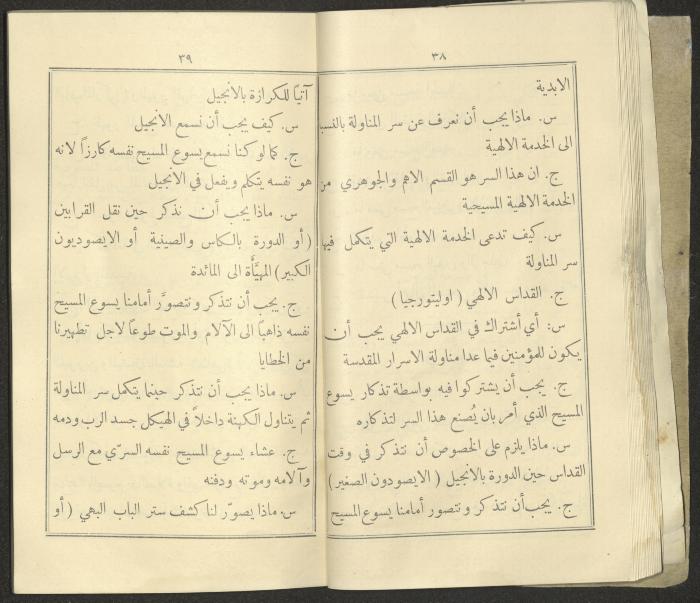 ٣٨
الابدية
س. ماذا يجب أن نعرف عن سر المناولة بالنسبة
الى الخدمة الالهية
ج. ان هذا السر هو القسم الاهم والجوهري من
الخدمة الالهية المسيحية
س. كيف تدعى الخدمة الالهية التي يتكمل فيها
سر المناولة
ج. القداس الالهي ( اوليتورجيا )
س: أي أشتراك في القداس الالهي يجب أن
يكون للمؤمنين فيما عدا مناولة الاسرار المقدسة
ج. يجب أن يشتركوا فيه بواسطة تذكار يسوع
المسيح الذي أمر بان يُصنع هذا السر لتذكاره
س. ماذا يلزم على الخصوص أن نتذكر في وقت
القداس حين الدورة بالانجيل ( الايصودون الصغير )
ج. يجب أن نتذكر ونتصور أمامنا يسوع المسيح
٣٩
آتيًا للكرازة بالانجيل
س. كيف يجب أن نسمع الانجيل
ج. كما لو كنا نسمع يسوع المسيح نفسه كارزًا لانه
هو نفسه يتكلم ويفعل في الانجيل
س. ماذا يجب أن نذكر حين نقل القرابين
( أو الدورة بالكاس والصينية أو الايصوديون
الكبير ) المهيَّأة الى المائدة
ج. يجب أن نتذكر ونتصوَّر أمامنا يسوع المسيح
نفسه ذاهبًا الى الآلام والموت طوعًا لاجل تطهيرنا
من الخطايا
س. ماذا يجب أن نتذكر حينما يتكمل سر المناولة
ثم يتناول الكهنة داخلاً في الهيكل جسد الرب ودمه
ج. عشاء يسوع المسيح نفسه السرّي مع الرسل
وآلامه وموته ودفنه
س. ماذا يصوّر لنا كشف ستر الباب البهي ( أو